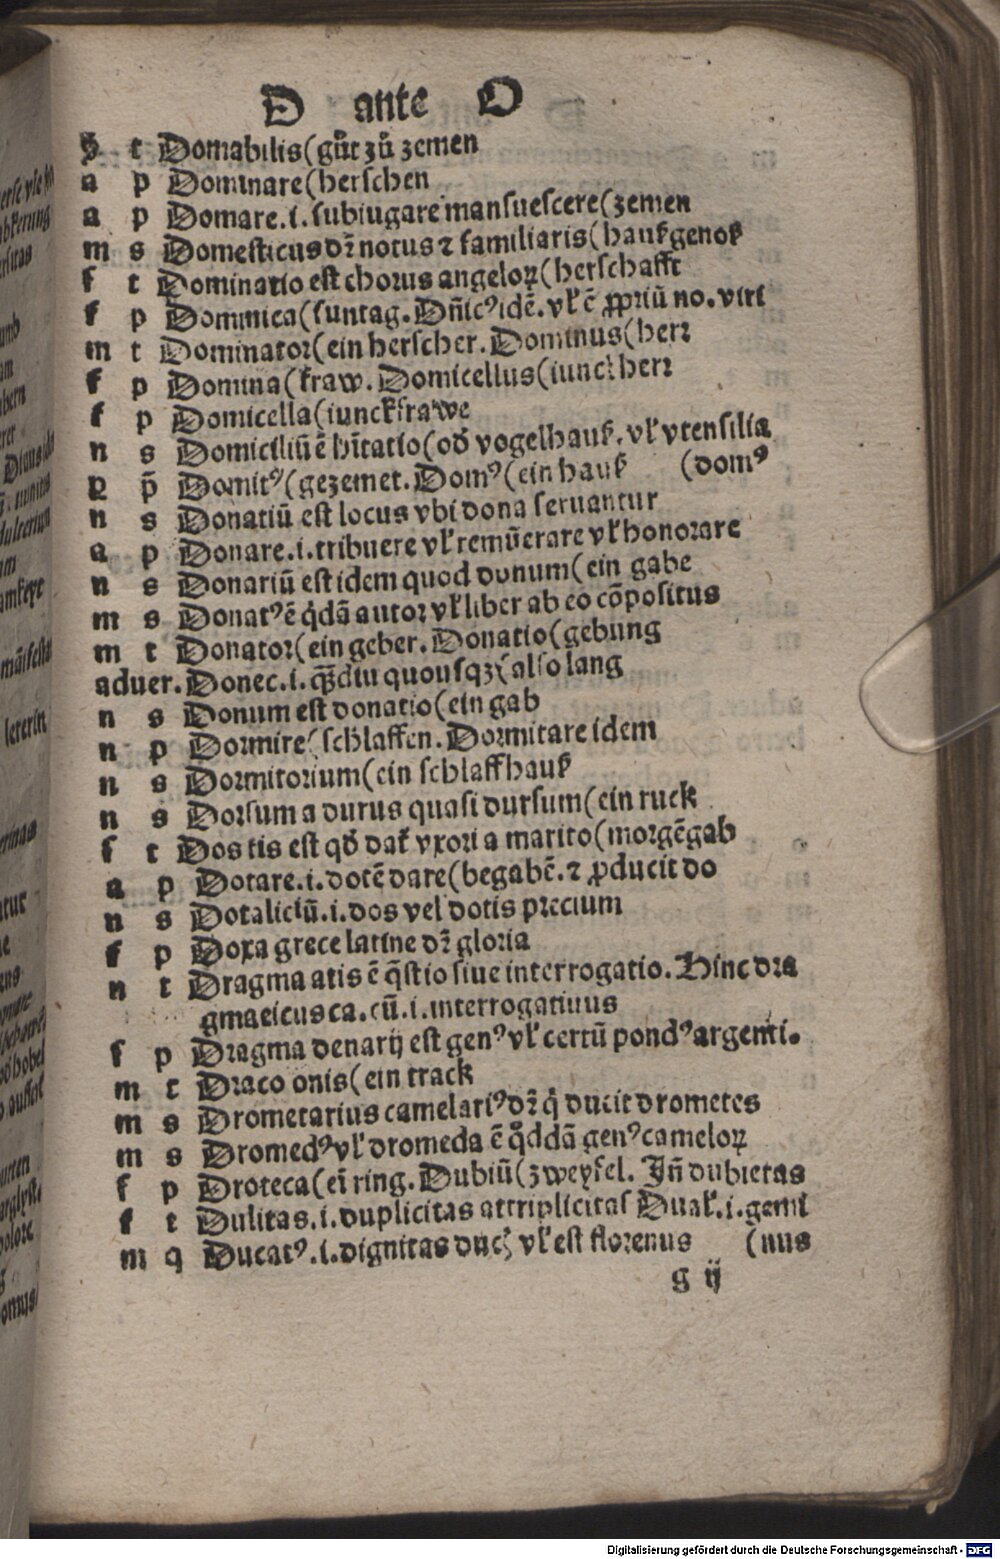 D ante O
h t Domabilis (gůt zů zemen
a p Dominare (herschen
a p Domare .i. subiugare mansuescere (zemen
m s Domesticus dr̄ notus ⁊ familiaris (haußgenoß
f t Dominatio est chorus angeloꝝ (herschafft
f p Dominica (suntag. Dn̄icꝰ idē. vl̕ ē ꝓpriū no. viri
m t Dominator (ein herscher. Dominus (herr
f p Domina (fraw. Domicellus (iunckherr
f p Domicella (iunckfrawe
n s Domiciliū ē hītatio (od̕ vogelhauß. vl̕ vtensilia
p p̄ Domitꝰ (gezemet. Domꝰ (ein hauß (domꝰ
n s Donatiū est locus vbi dona seruantur
a p Donare .i. tribuere vl̕ remūerare vl̕ honorare
n s Donariū est idem quod donum (ein gabe
m s Donatꝰ ē q̇dā autor vl̕ liber ab eo cōpositus
m t Donator (ein geber. Donatio (gebung
aduer. Donec .i. q̄ꝫdiu quousqꝫ (also lang
n s Donum est donatio (ein gab
n p Dormire (schlaffen. Dormitare idem
n s Dormitorium (ein schlaffhauß
n s Dorsum a durus quasi dursum (ein ruck
f t Dos tis est qd̕ dat̕ vxori a marito (morgēgab
a p Dotare .i. dotē dare (begabē. ⁊ ꝓducit do
n s Dotaliciū .i. dos vel dotis precium
f p Doxa grece latine dr̄ gloria
n t Dragma atis ē q̄stio siue interrogatio. Hinc dra
gmaticus ca. cū .i. interrogatiuus
f p Dragma denarij est genꝰ vl̕ certū pondꝰ argenti.
m t Draco onis (ein track
m s Drometarius camelariꝰ dr̄ q̇ ducit drometes
m s Dromedꝰ vl̕ dromeda ē q̇ddā genꝰ cameloꝝ
f p Droteca (eī ring. Dubiū (zweyfel. Iñ dubietas
f t Dulitas .i. duplicitas at triplicitas Dual̕ .i. gemi
m q Ducatꝰ .i. dignitas ducꝭ vl̕ est florenus (nus
g ij
Digitalisierung gefördert durch die Deutsche Forschungsgemeinschaft - DFG